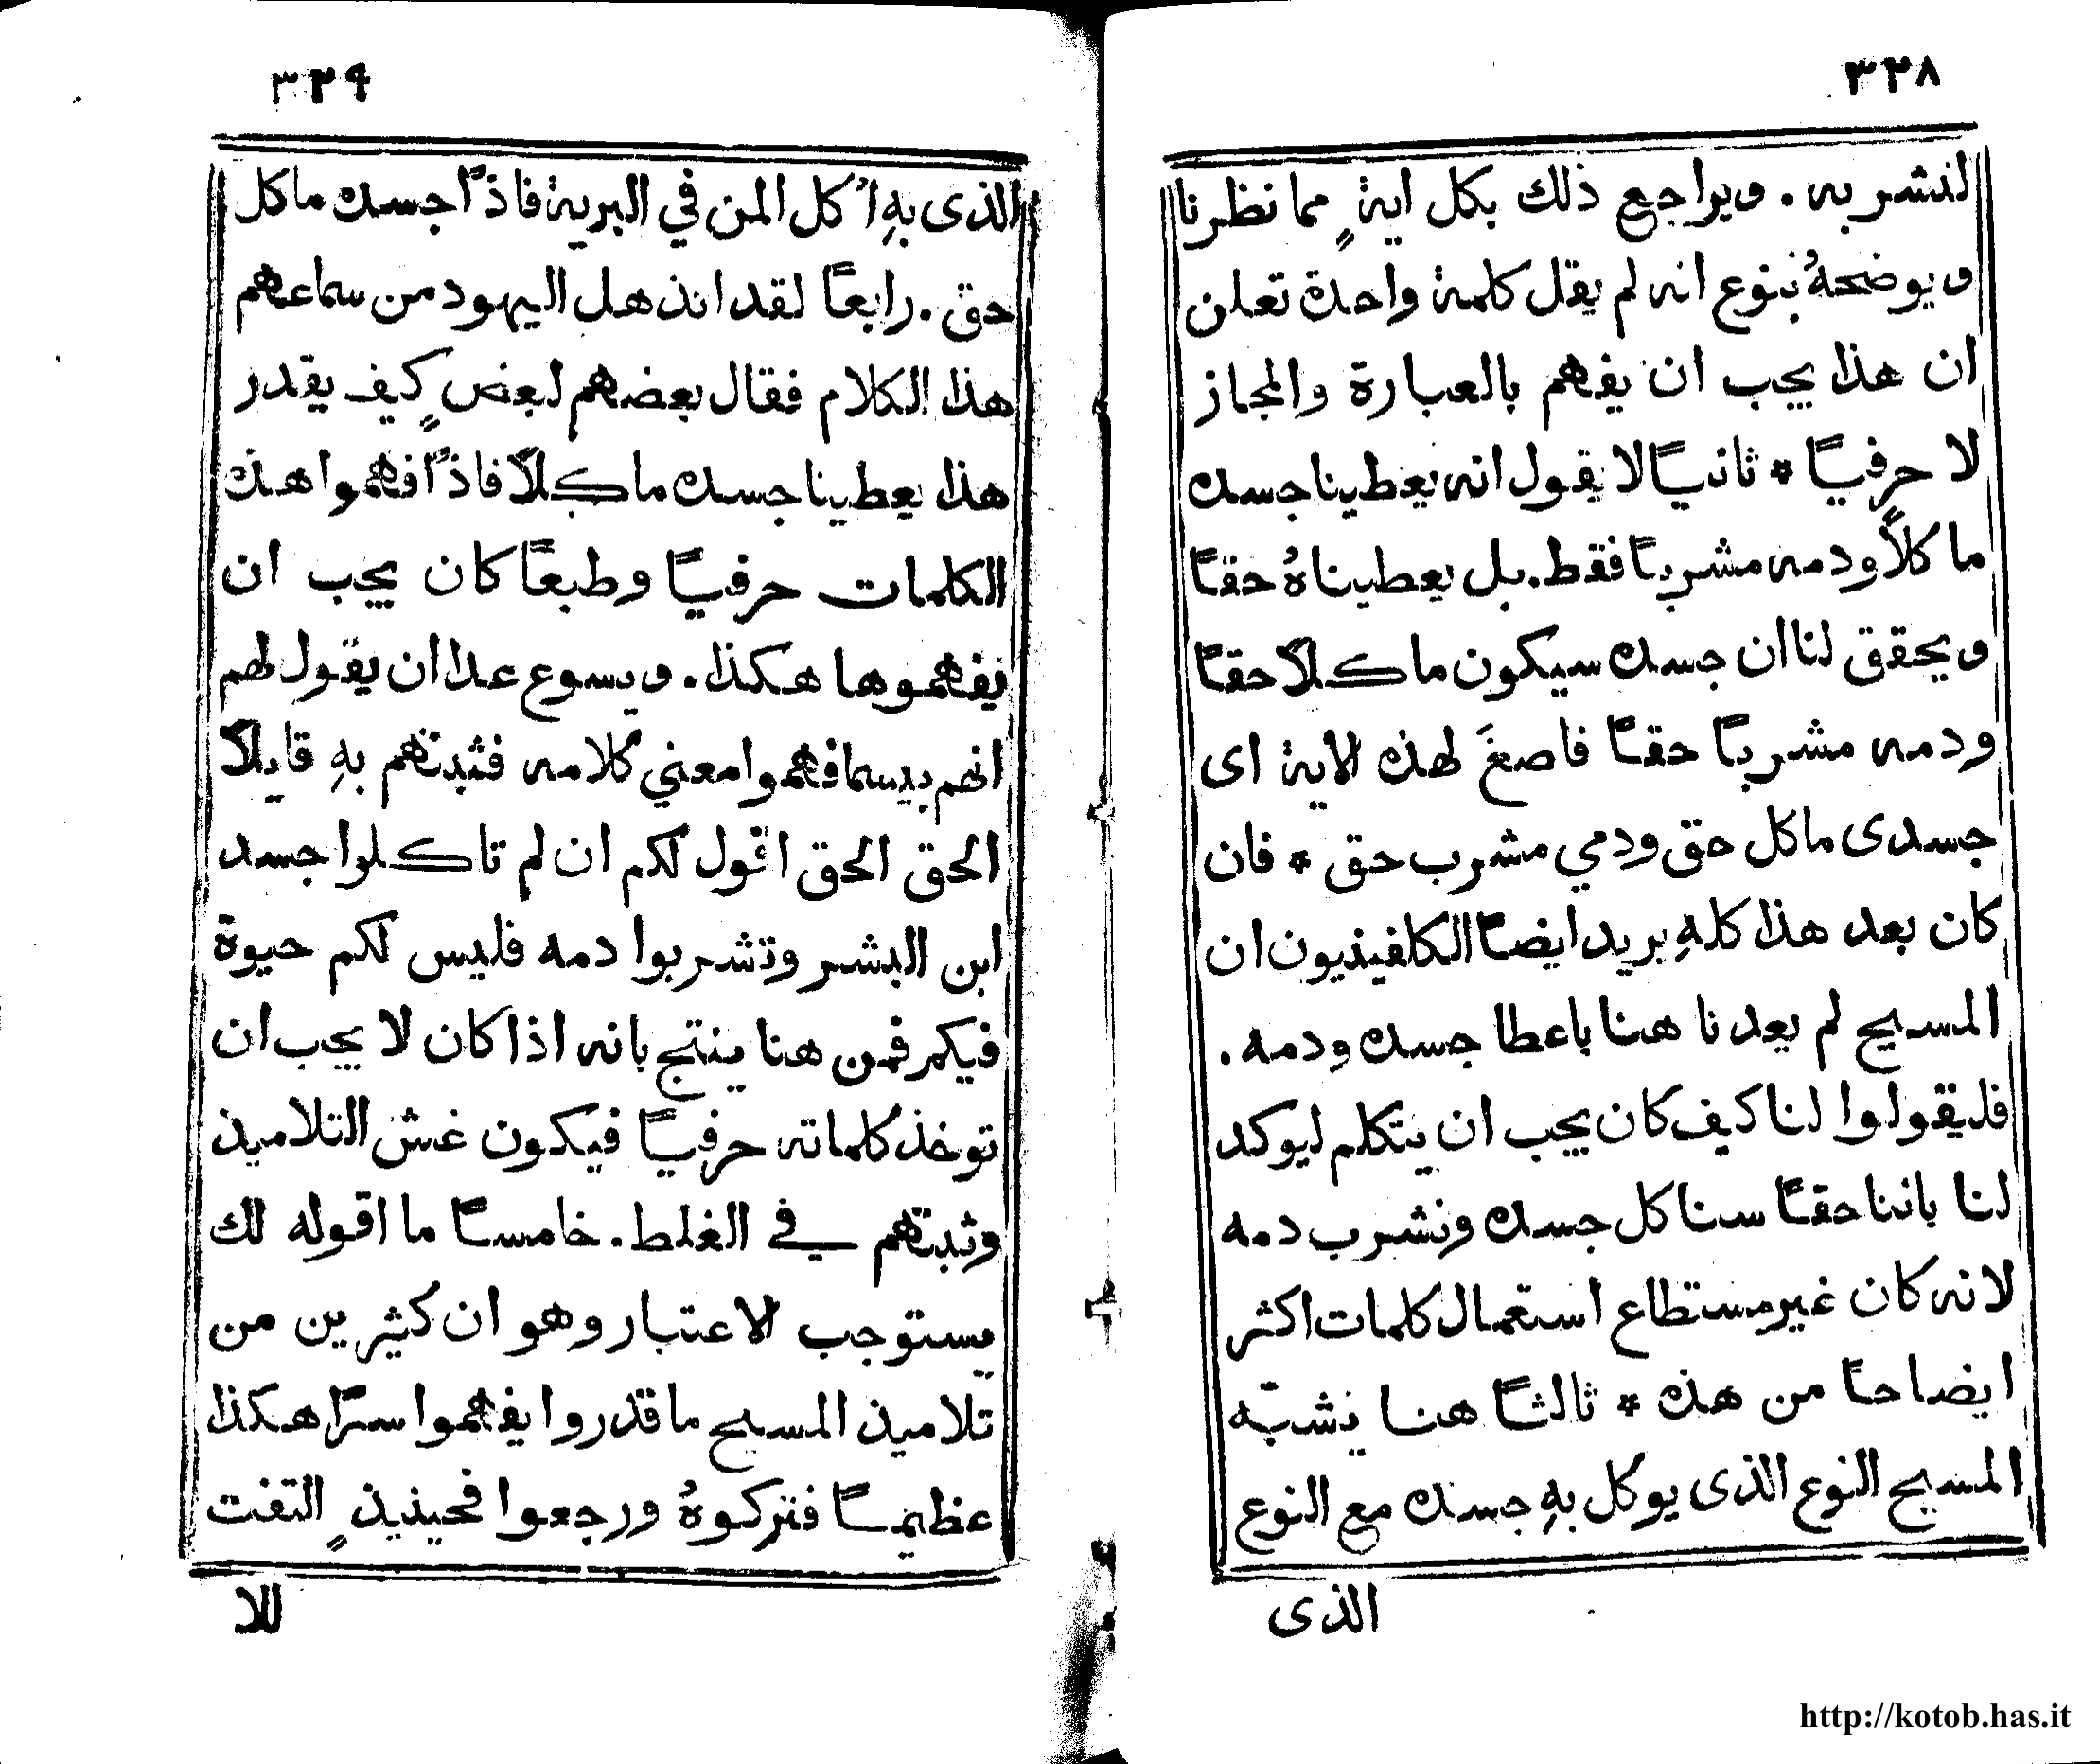 ٣٢٨
لنشر به . ويراجع ذلك بكل ايةٍ مما نظرنا
ويوضحهُ بنوع انه لم يقل كلمة واحدة تعلن
ان هذا يجب ان يفهم بالعبارة والمجاز
لا حرفيـًا * ثانيـًا لا يقول انه يعطينا جسده
ماكلاً ودمه مشربـًا فقط . بل يعطيناهُ حقـًا
ويحقق لنا ان جسده سيكون ماكلاً حقـًا
ودمه مشربـًا حقـًا فاصغَ لهذه الاية اى
جسدى ماكل حق ودمي مشرب حق * فان
كان بعد هذا كلهِ يريد ايضـًا الكلفينيون ان
المسيح لم يعدنا هنا باعطا جسده ودمه .
فليقولوا لنا كيف كان يجب ان يتكلم ليوكد
لنا باننا حقـًا سناكل جسده ونشرب دمه
لانه كان غير مستطاع استعمال كلمات اكثر
ايضاحـًا من هذه * ثالثـًا هنا يشبّه
المسيح النوع الذى يوكل بهِ جسده مع النوع
الذى
٣٢٩
الذى بهِ اُكل المن في البرية فاذًا جسده ماكل
حق . رابعـًا لقد انذهل اليهود من سماعهم
هذا الكلام فقال بعضهم لبعضٍ كيف يقدر
هذا يعطينا جسده ماكلاً فاذًا فهموا هذه
الكلمات حرفيـًا وطبعـًا كان يجب ان
يفهموها هكذا . ويسوع عدا ان يقول لهم
انهم بيسما فهموا معني كلامه فثبتهم بهِ قايلاً
الحق الحق اقول لكم ان لم تاكلوا جسد
ابن البشر وتشربوا دمه فليس لكم حيوة
فيكم فمن هنا ينتج بانه اذا كان لا يجب ان
توخذ كلماته حرفيـًا فيكون غش التلاميذ
وثبتهم في الغلط . خامسـًا ما اقوله لك
يستوجب الاعتبار وهو ان كثيرين من
تلاميذ المسيح ما قدروا يفهموا سرًا هكذا
عظيمـًا فتركوهُ ورجعوا فحينيذٍ التفت
للا
http://kotob.has.it